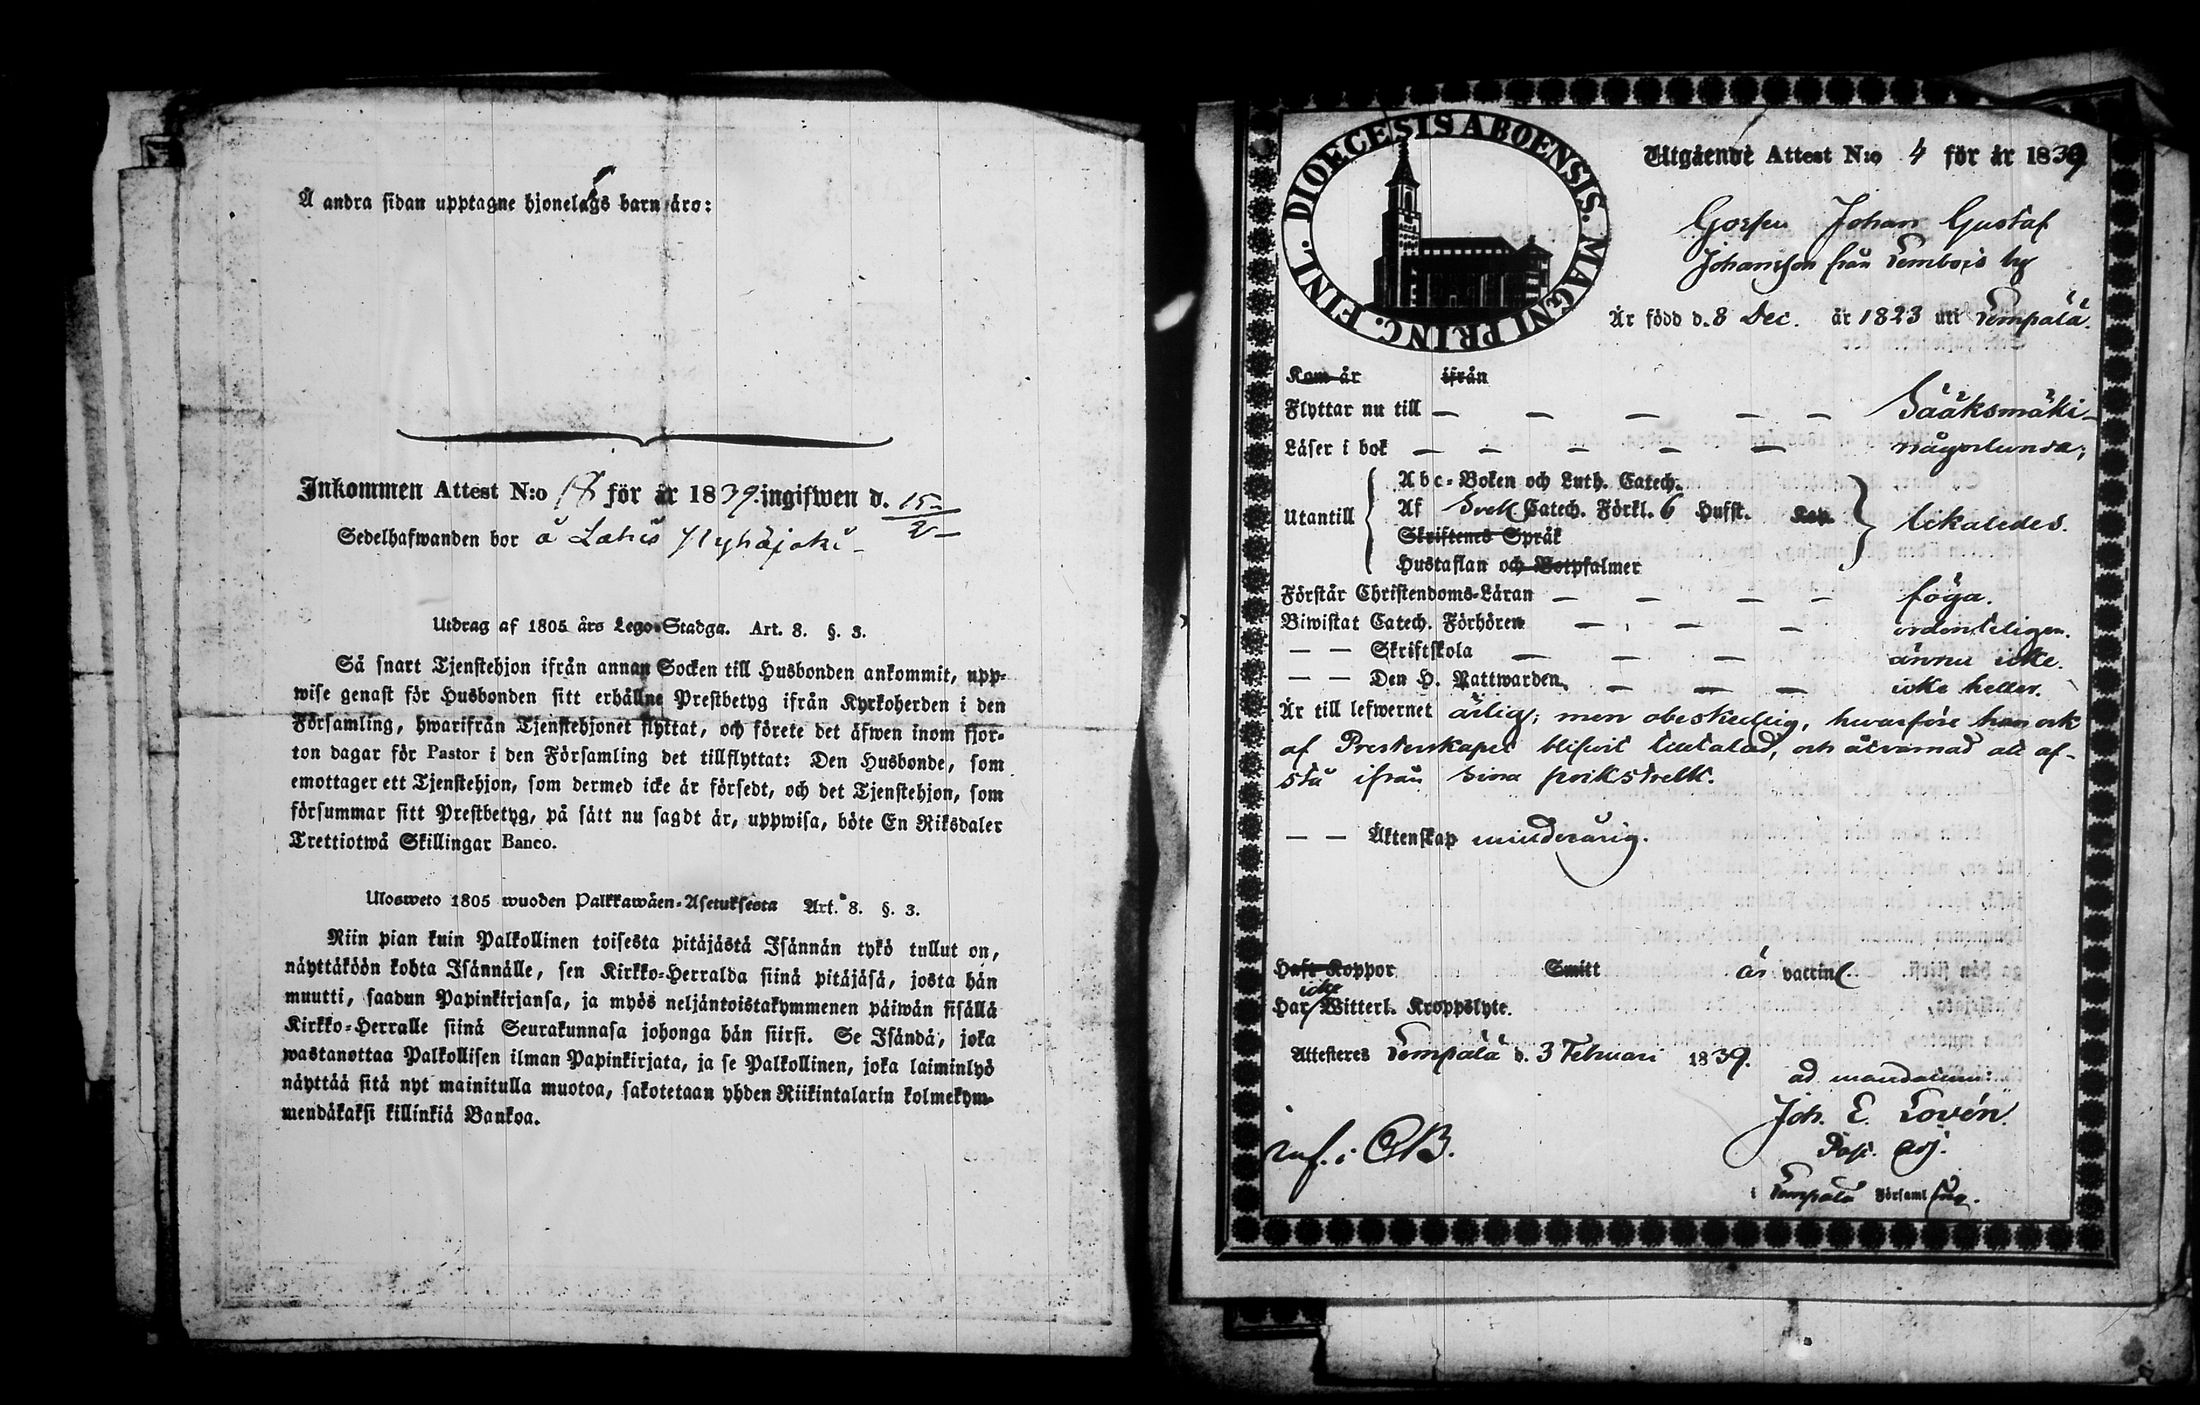 Å andra sidan upptagne hjonelags barn äro:
Inkommen Attest N:o 18 för år 1839. ingifwen d. 15/2
Sedelhafwanden bor å Lahis Ylyhäjaki
Utdrag af 1805 års Lego-Stadga. Art. 8. §. 3.
Så snart Tjenstehjon ifrån annan Socken till Husbonden ankommit, upp-
wise genast för Husbonden sitt erhållne Prestbetyg ifrån Kyrkoherden i den
Församling, hwarifrån Tjenstehjonet flyttat, och förete det äfwen inom fjor-
ton dagar för Pastor i den Församling det tillflyttat: Den Husbonde, som
emottager ett Tjenstehjon, som dermed icke är försedt, och det Tjenstehjon, som
försummar sitt Prestbetyg, på sätt nu sagdt är, uppwisa, böte En Riksdaler
Trettiotwå Skillingar Banco.
Ulosweto 1805 wuoden Palkkawäen-Asetuksesta Art. 8. §. 3.
Niin pian kuin Palkollinen toisesta pitäjästä Isännän tykö tullut on,
näyttäköön kohta Isännälle, sen Kirkko-Herralda siinä pitäjäsä, josta hän
muutti, saadun Papinkirjansa, ja myös neljäntoistakymmenen päiwän sisällä
Kirkko-Herralle siinä Seurakunnasa johonga hän siirsi. Se Isändä, joka
wastanottaa Palkollisen ilman Papinkirjata, ja se Palkollinen, joka laiminlyö
näyttää sitä nyt mainitulla muotoa, sakotetaan yhden Riikintalarin kolmekym-
mendäkaksi killinkiä Bankoa.
DIOECESIS ABOENSIS. MAGNI PRINC. FINL.
Utgående Attest N:o 4 för år 1839
Gossen Johan Gustaf
Johansson från Tembois by
Är född d. 8 Dec. år 1823 uti Lempälä.
Kom år ifrån
Flyttar nu till — — — — — Sääksmäki
Läser i bok — — — — — någorlunda;
Abc-Boken och Luth. Catech.
Utantill Af Sveb Catech. Förkl. 6 Hufst. Kap. likaledes.
Skriftenes Språk
Hustaflan och Botpsalmer
Förstår Christendoms-Läran — — — — föga.
Biwistat Catech. Förhören — — — ordenteligen.
— — Skriftskola — — — ännu icke.
— — Den H. Nattwarden — — — icke heller.
Är till lefwernet ärlig; men obeskedlig, hwarföre han ock
af Presterskapet blifvit tilltalad, och åtvarnad att af-
stå ifrån sina pojkstreck.
— — Äktenskap minderårig.
Haft Koppor Smitt är vaccin
Har icke Witterl. Kroppslyte.
Attesteres Lempälä d. 3 Februari 1839.
ad mandatum:
Joh. E. Lovén.
Past. Adj.
i Lempälä Församling.
inf. i CB.